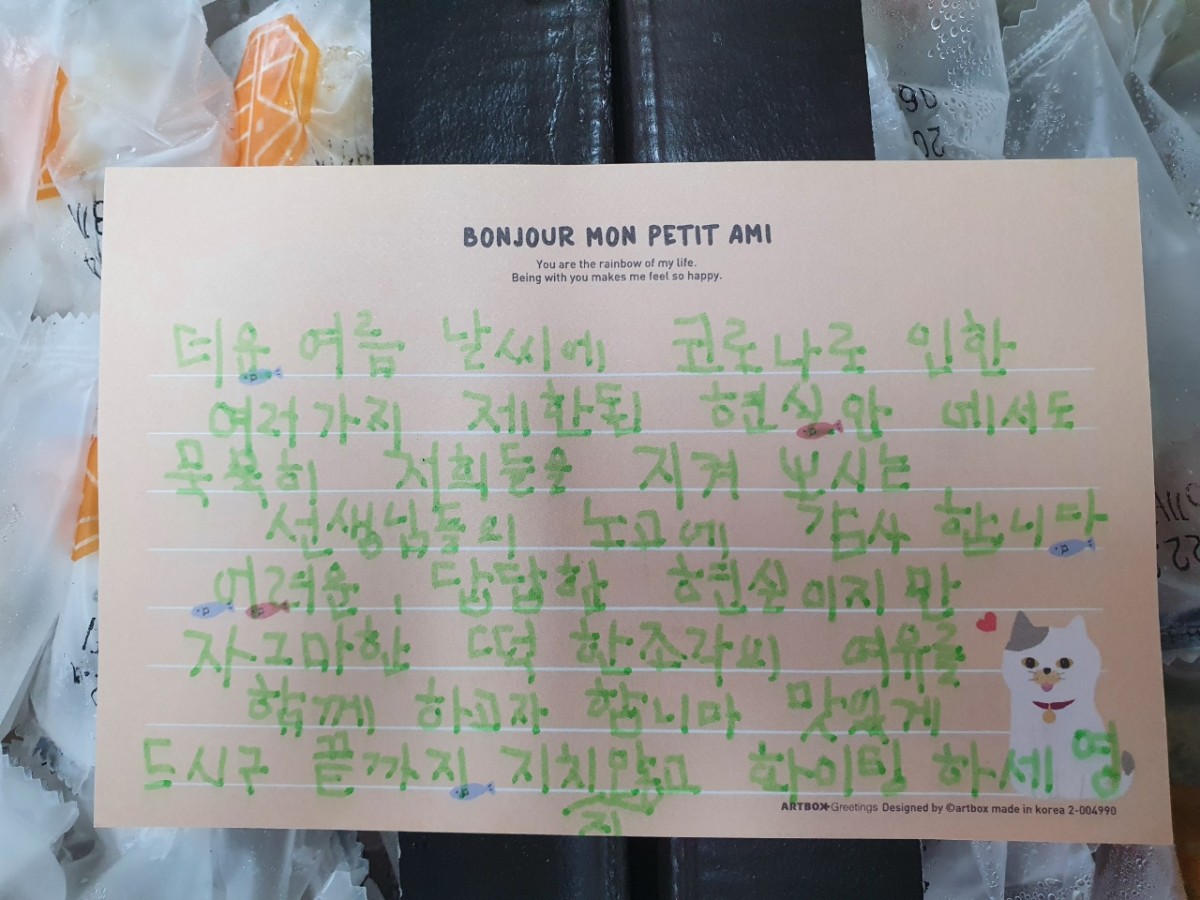 BONJOUR MON PETIT AMI
You are the rainbow of my life.
Being with you makes me feel so happy.
더운 여름 날씨에 코로나로 인한
여러가지 제한된 현실안 에서도
묵묵히 저희들을 지켜 보시는
선생님들의 노고에 감사 합니다
어려운, 답답함 현실이지만
자그마한 떡 한조각씩 여유를
함께 하고자 합니다 맛있게
드시구 끝까지 지치않고 화이팅 하세영
ARTBOX Greetings Designed by ©artbox made in korea 2-004990